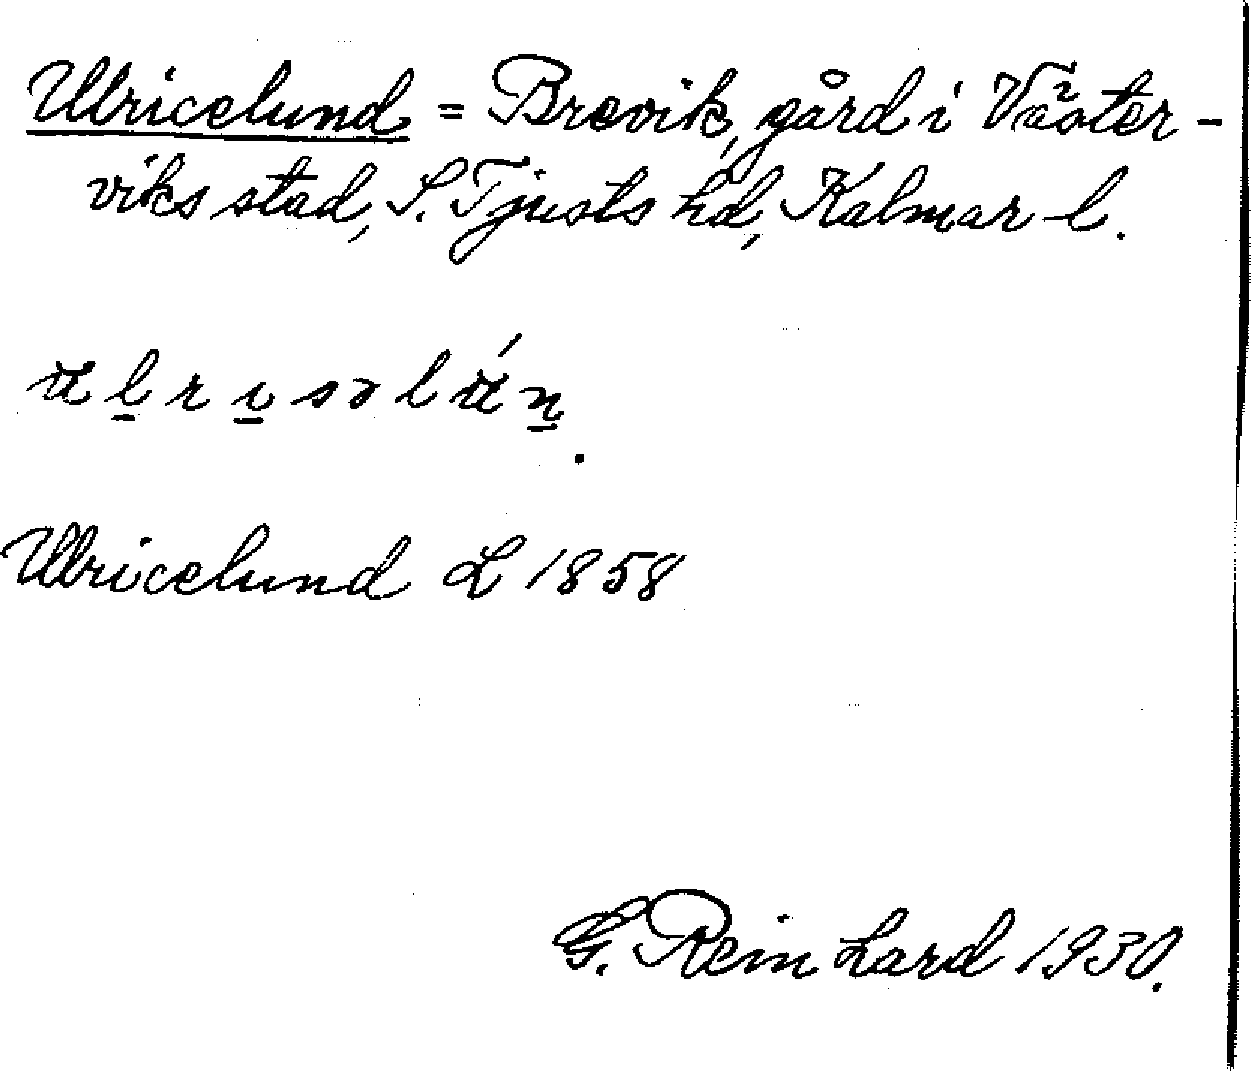 Ulricelund = Brevik, gård i Väster-
viks stad, S. Tjusts hd, Kalmar l.
Ulricelund L 1858
G. Reinhard 1930.